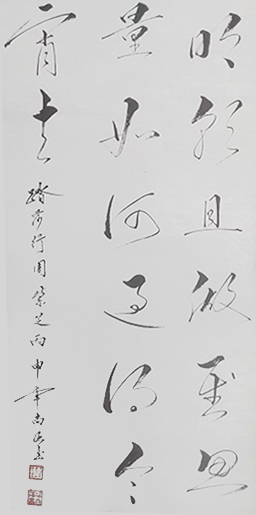 明朝且做莫思
量如何過得今
宵去
踏莎行周紫芝丙申年尚書